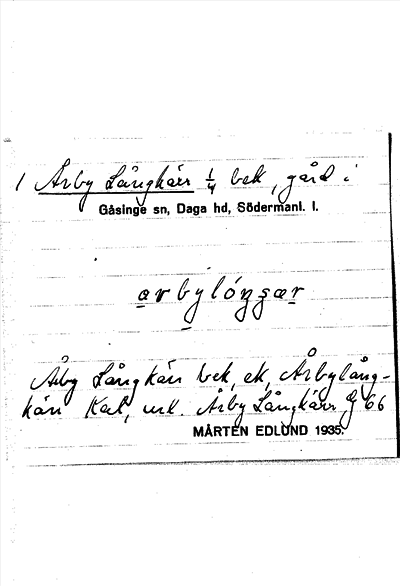 1 Årby Långkärr 1/4 bek, gård i
Gåsinge sn, Daga hd, Södermanl. l.
Årby Långkärr bek, ek, Årbylång-
kärr Kat, urk. Årby Långkärr, J 66
MÅRTEN EDLUND 1935.